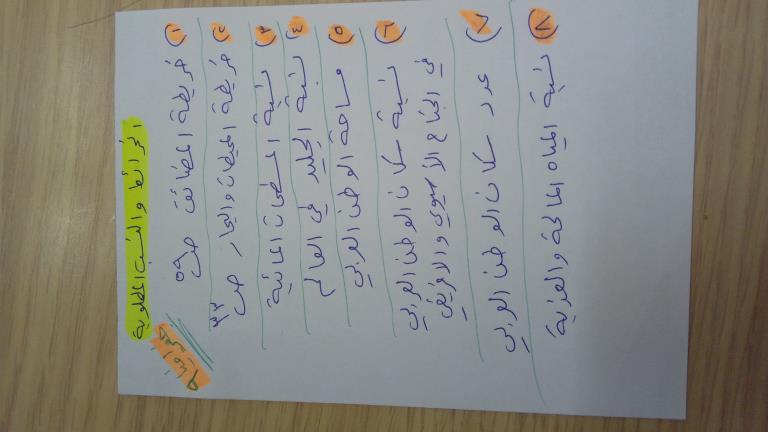 الخرائط والنسب المطلوبة
جغرافيا
١) خريطة المضائق ص٥٩
٢) خريطة المحيطات والبحار ص
٣) نسبة المسطحات المائية
٤) نسبة الجليد في العالم
٥) مساحة الوطن العربي
٦) نسبة سكان الوطن العربي
في الجناح الآسيوي والافريقي
٧) عدد سكان الوطن العربي
٨) نسبة المياه المالحة والعذبة